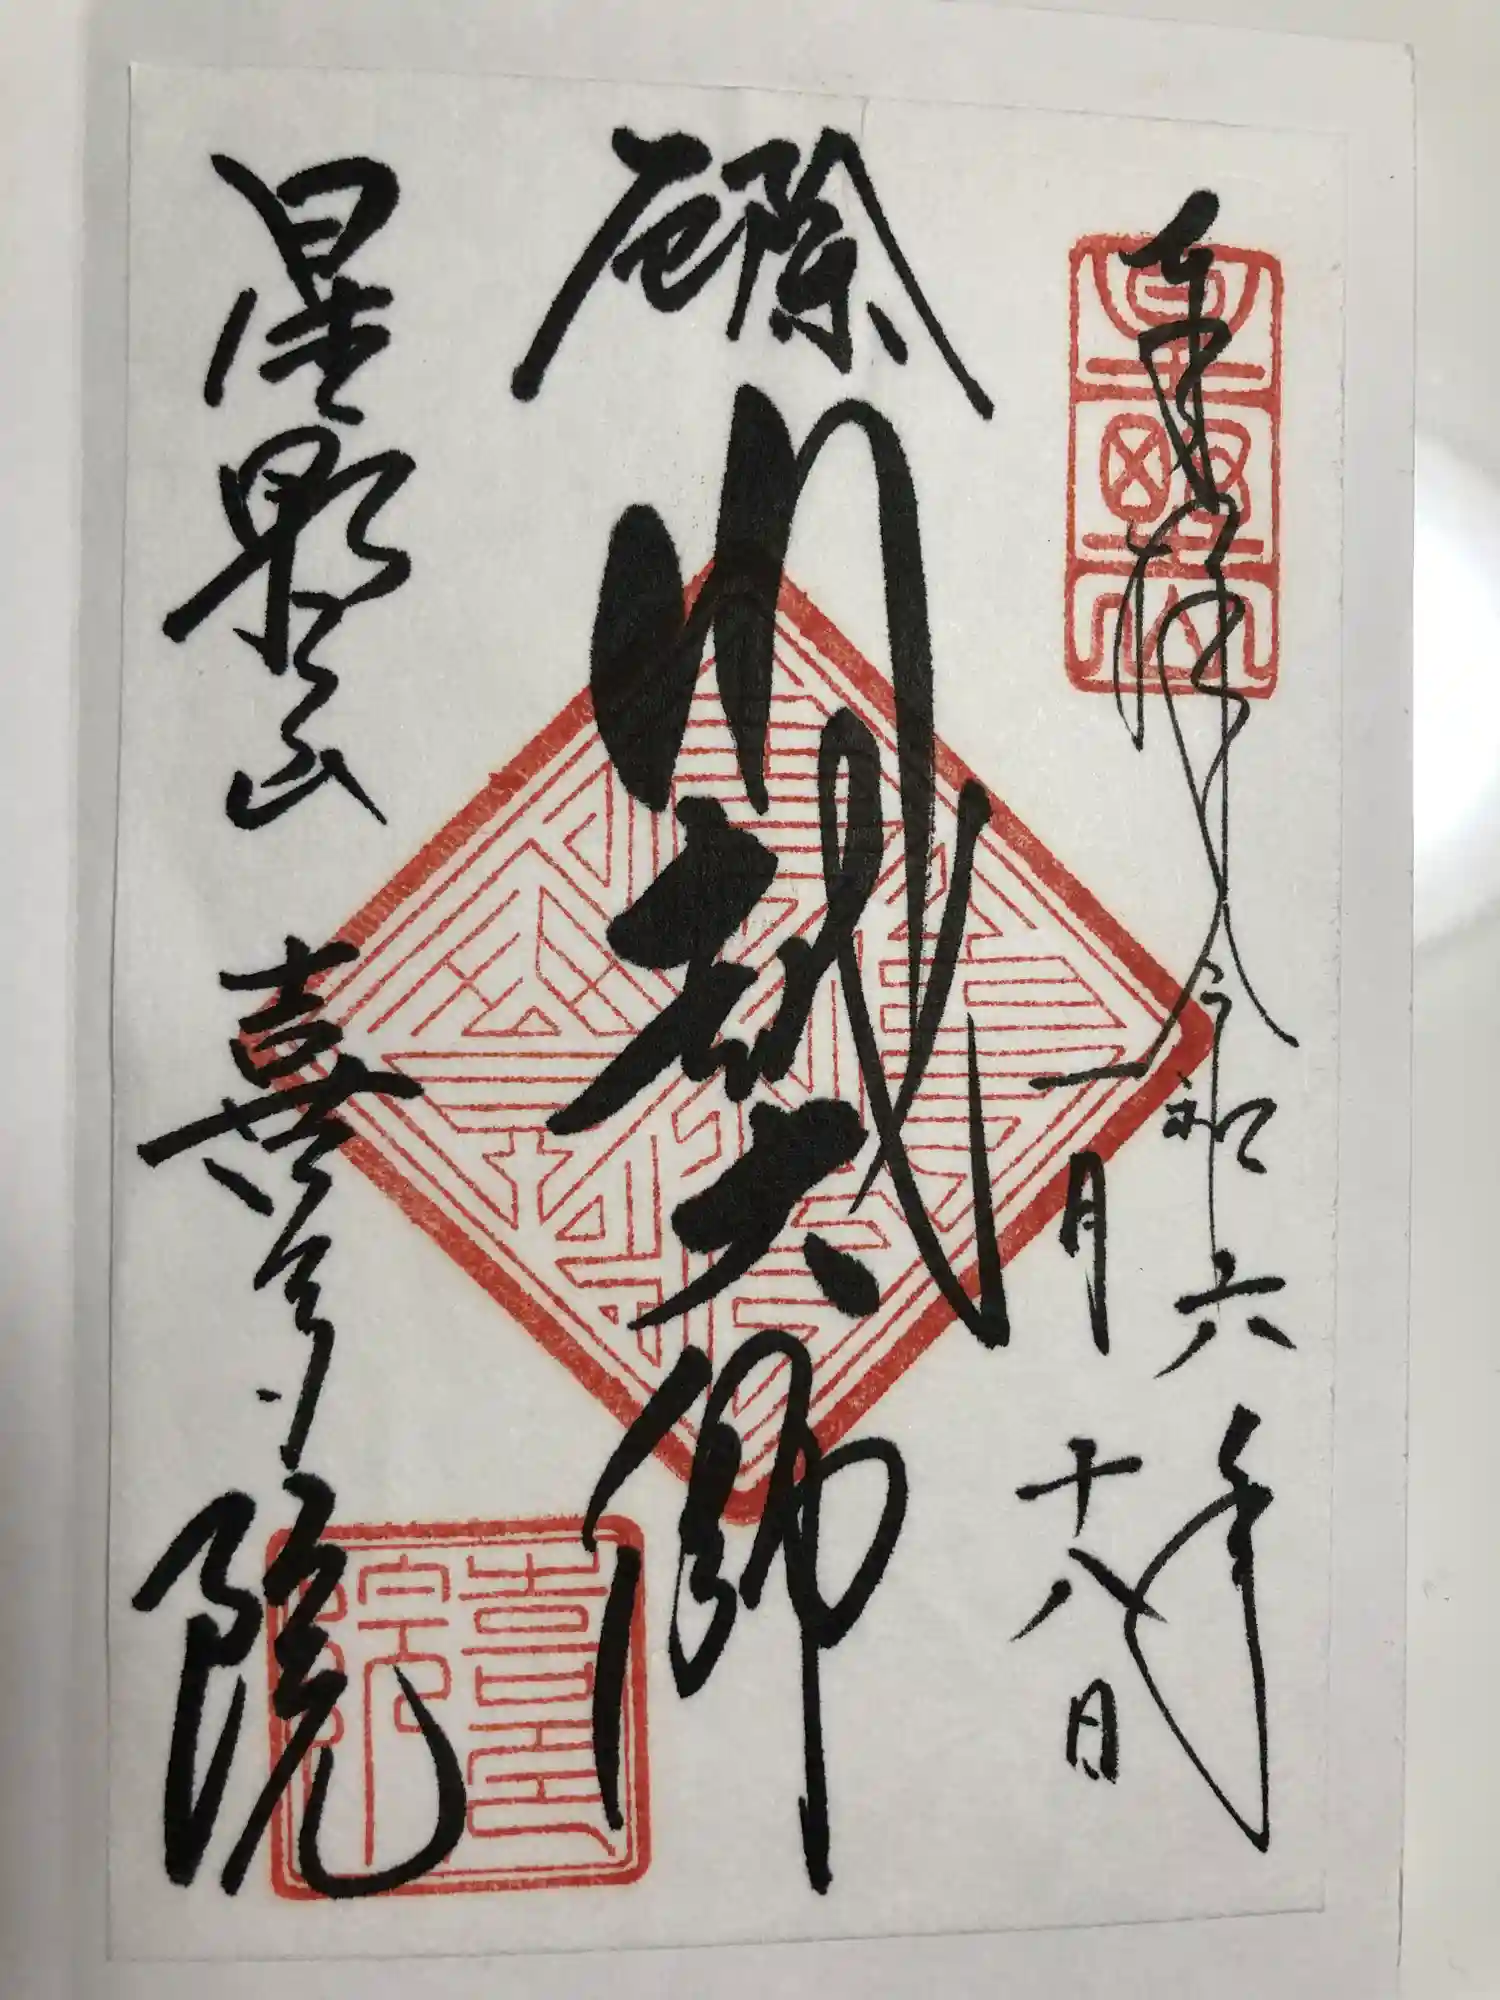 奉拝
令和六年
一月十八日
厄除
川越大師
星野山
喜多院
星野山
喜多院